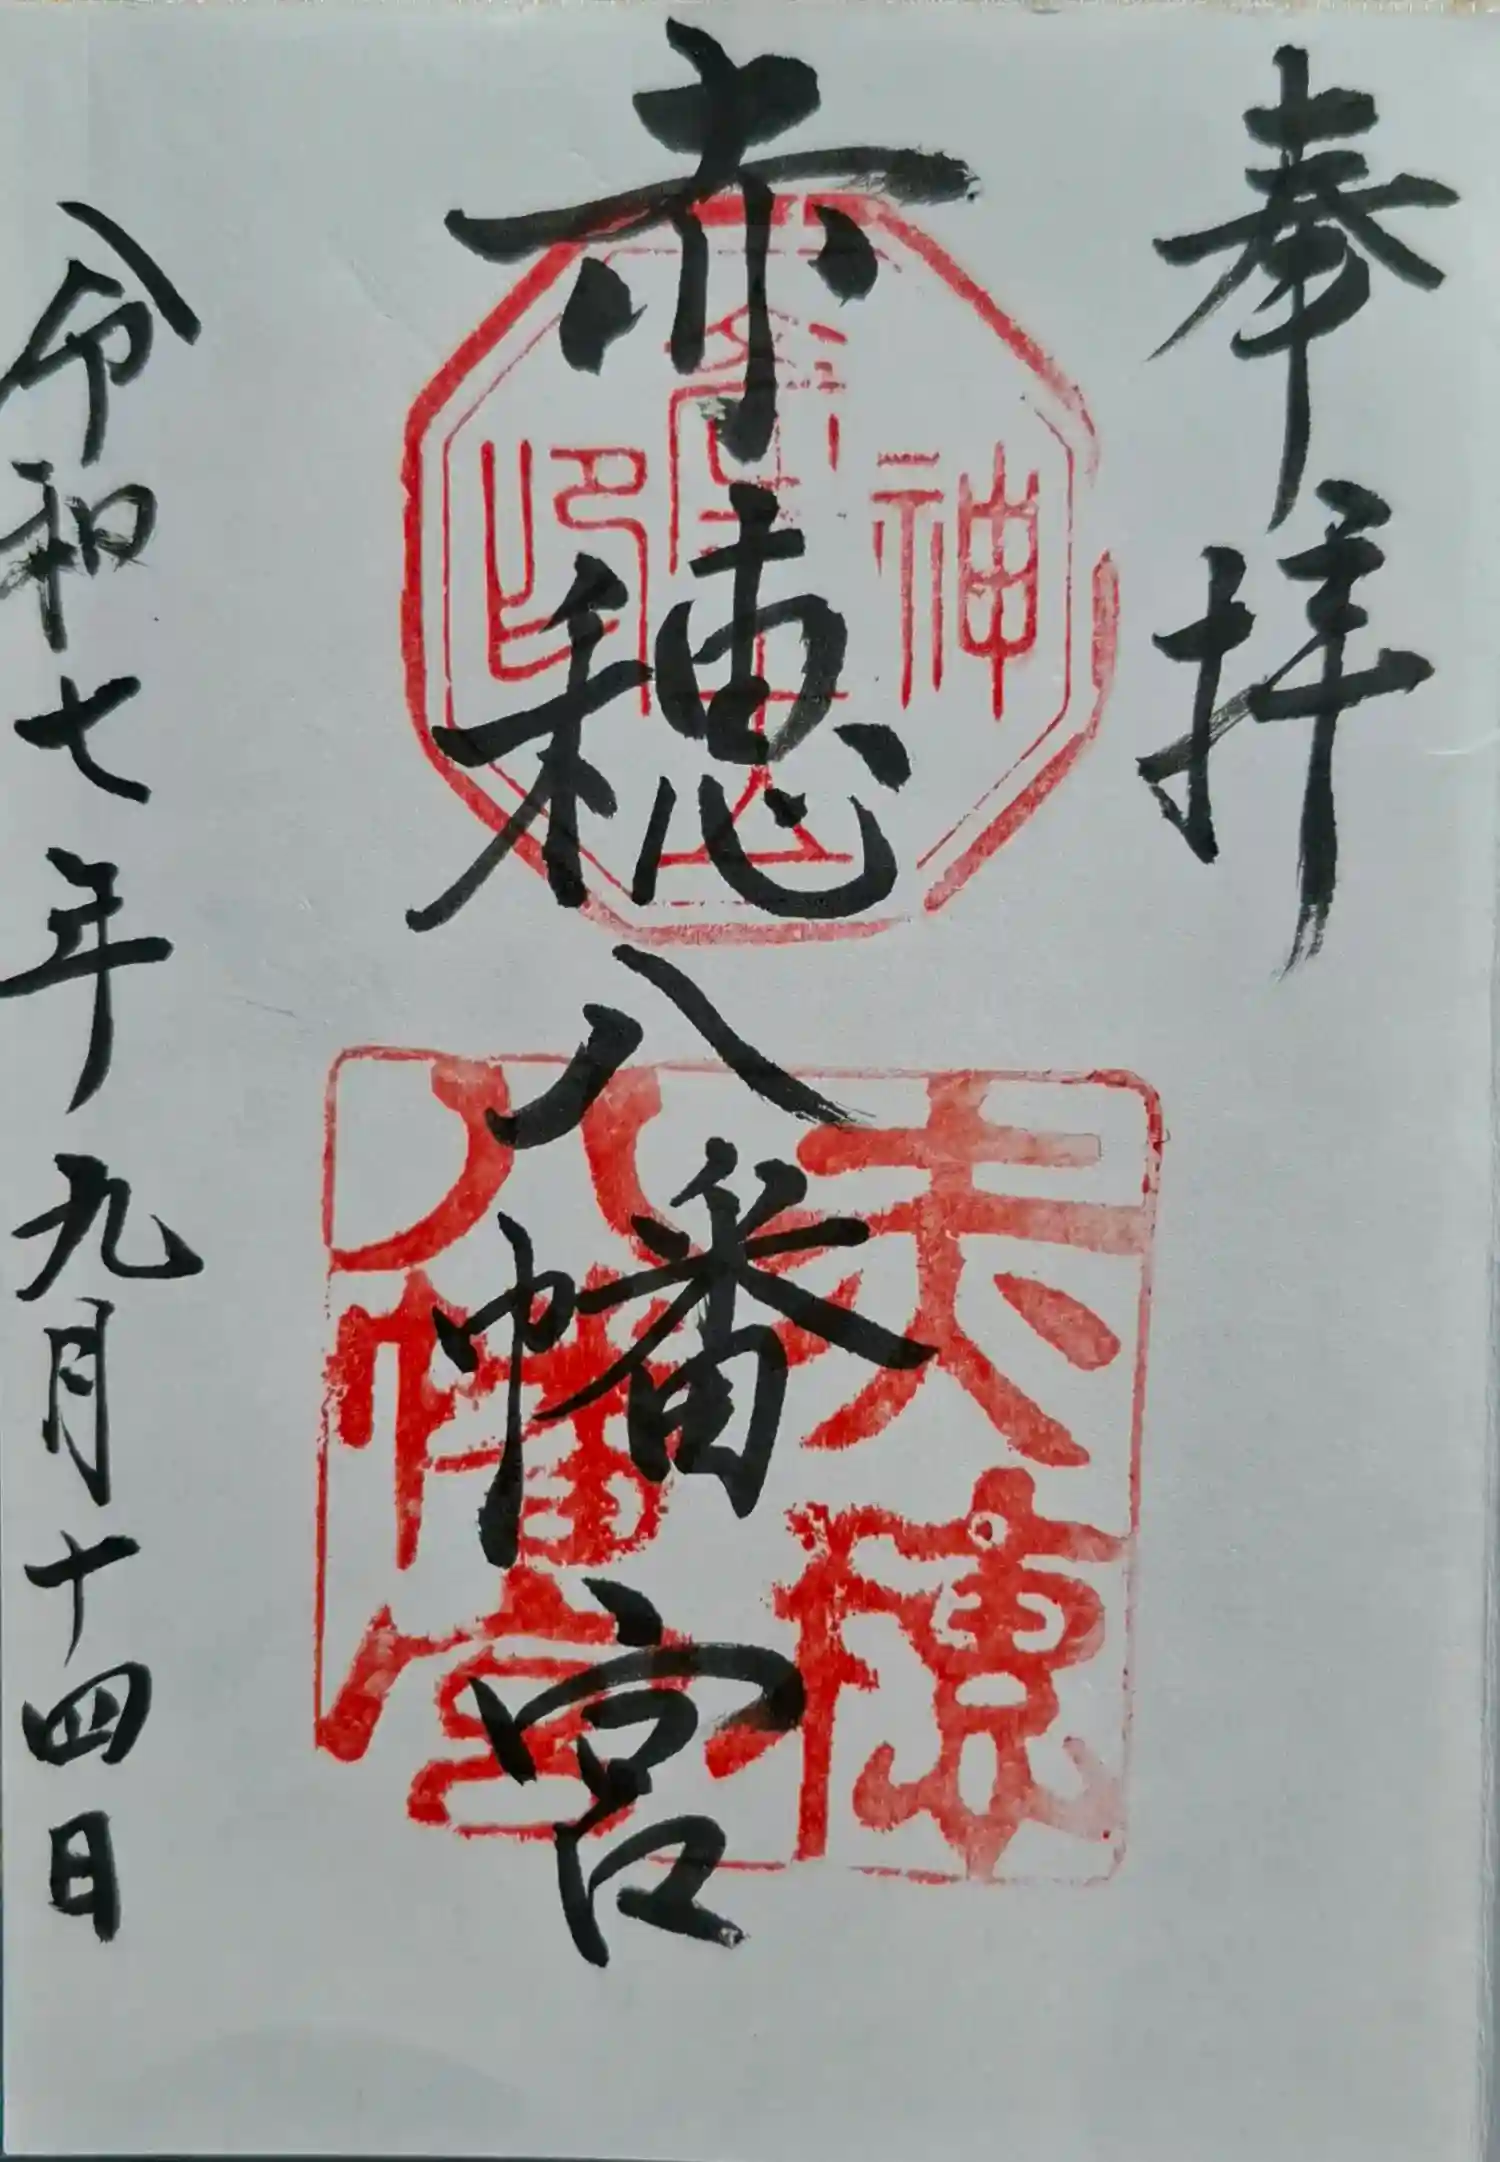 奉拝
赤穂八幡宮
神
印
赤穂
八幡宮
令和七年九月十四日